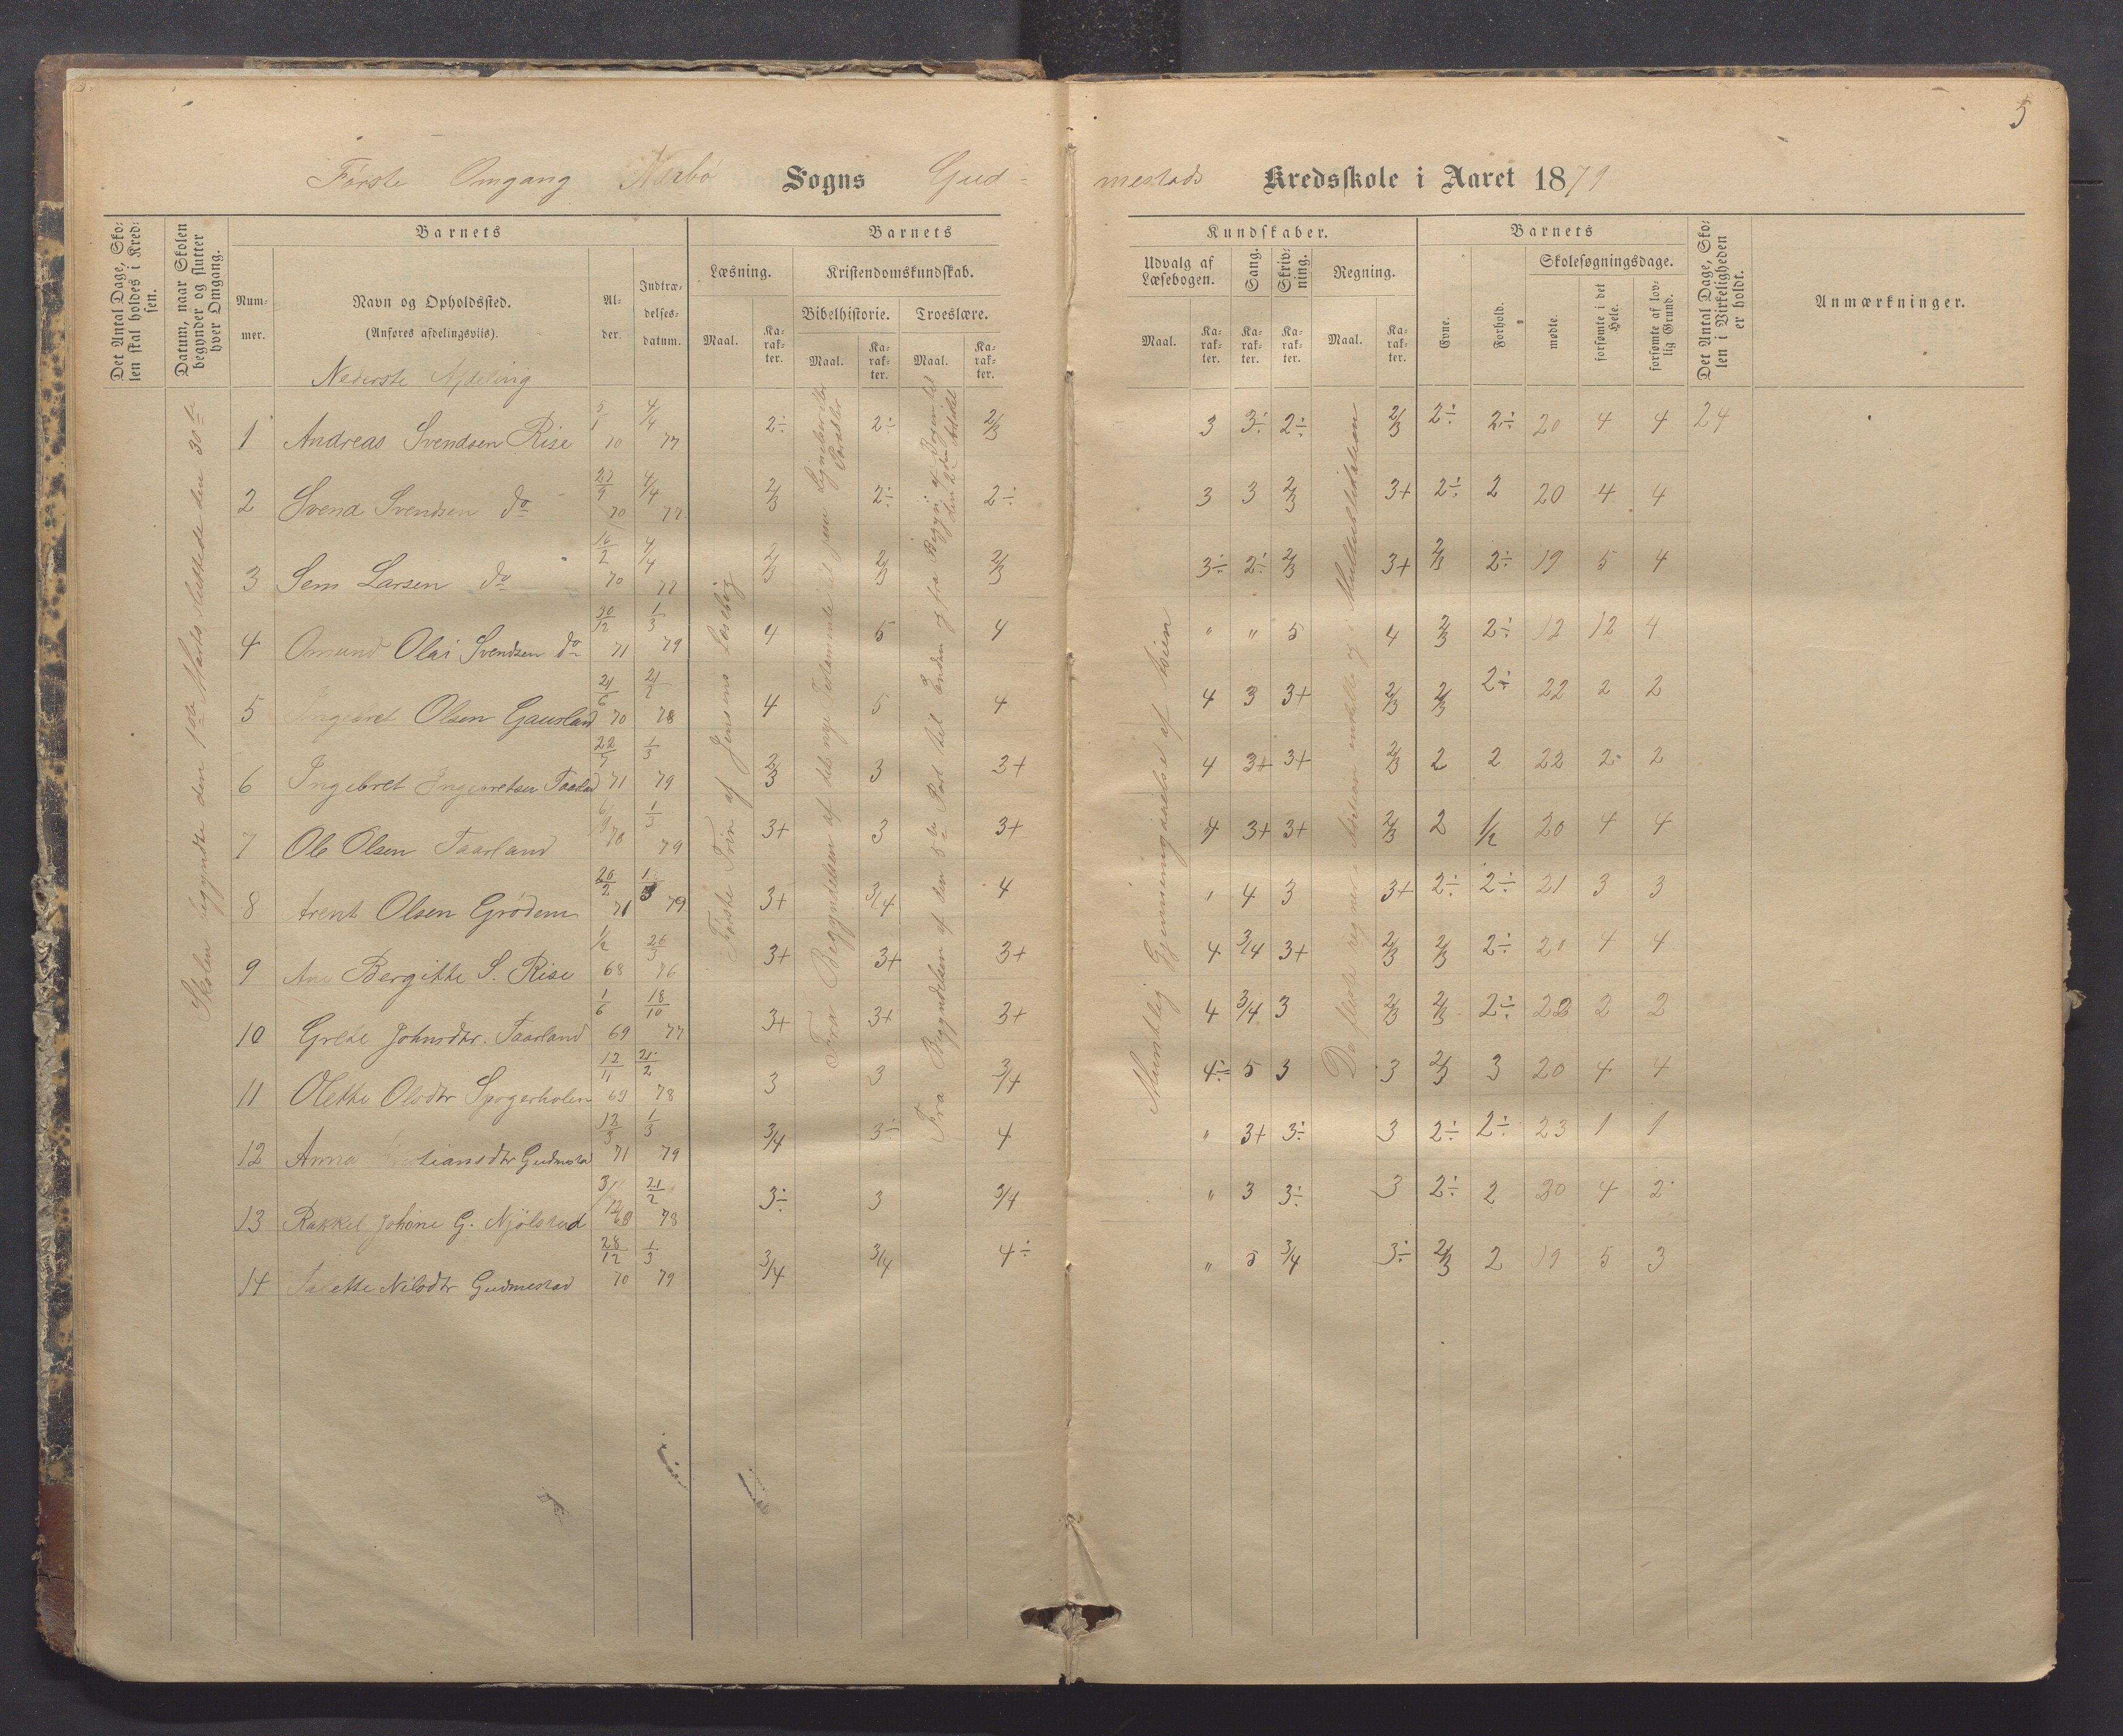 5
Første Omgang Nærbø Sogns Gud-
mestads Kredsskole i Aaret 1879
Det Antal Dage, Sko-
len skal holdes i Kred-
sen.
Datum, naar Skolen
begynder og slutter
hver Omgang.
Barnets
Num-
mer.
Navn og Opholdssted.
(Anføres afdelingsviis).
Al-
der.
Indtræ-
delses-
datum.
Barnets
Læsning.
Maal.
Ka-
rak-
ter.
Kristendomskundskab.
Bibelhistorie.
Maal.
Ka-
rak-
ter.
Troeslære.
Maal.
Ka-
rak-
ter.
Kundskaber.
Udvalg af
Læsebogen.
Maal.
Ka-
rak-
ter.
Sang.
Ka-
rak-
ter.
Skriv-
ning.
Ka-
rak-
ter.
Regning.
Maal.
Ka-
rak-
ter.
Barnets
Evne.
Forhold.
Skolesøgningsdage.
mødte.
forsømte i det
Hele.
forsømte af lov-
lig Grund.
Det Antal Dage, Sko-
len i Virkeligheden
er holdt.
Anmærkninger.
Nederste Afdeling
Skolen begyndte den 1ste Marts sluttede den 30te
Første Trin af Jensens Læsebog
Fra Begyndelsen af det nye Testamente til Jesu Lignelser eller
Parabler
Fra Begyndelsen af den 5te Part til Enden og fra Begyn. af Bogen til
den 2den Artikel
Mundtlig Gjennemgaaelse af
De fleste regner i Addition enkelte og i Multiplikation
1 Andreas Svendsen Rise 5/1 70 4/4 77 2÷ 2÷ 2/3 3 3÷ 2÷ 2/3 2÷ 2÷ 20 4 4 24
2 Svend Svendsen do 27/9 70 4/4 77 2/3 2÷ 2÷ 3 3 2/3 3+ 2÷ 2 20 4 4
3 Sem Larsen do 16/2 70 4/4 77 2/3 2/3 2/3 3÷ 2÷ 2/3 3+ 2/3 2÷ 19 5 4
4 Omund Olai Svendsen do 30/12 71 1/3 79 4 5 4 " " 5 4 2/3 2÷ 12 12 4
5 Ingebret Olsen Gausland 21/6 70 21/2 78 4 5 4 4 3 3+ 2/3 2/3 2÷ 22 2 2
6 Ingebret Ingebretsen Taarland 22/7 71 1/3 79 2/3 3 3+ 4 3+ 3+ 2/3 2 2 22 2 2
7 Ole Olsen Taarland 6/9 70 1/3 79 3+ 3 3+ 4 3+ 3+ 2/3 2 1/2 20 4 4
8 Arent Olsen Grødem 26/2 71 1/3 79 3+ 3/4 4 " 4 3 3+ 2÷ 2÷ 21 3 3
9 Ane Bergitte S. Rise 1/2 68 26/3 76 3+ 3+ 3+ 4 3/4 3+ 2/3 2/3 2÷ 20 4 4
10 Grete Johnsdtr. Taarland 1/6 69 18/10 77 3+ 3+ 3+ 4 3/4 3 2/3 2/3 2÷ 22 2 2
11 Olette Olsdtr 12/4 69 21/2 78 3 3 3/4 4÷ 5 3 3 2/3 3 20 4 4
12 Anna Kristiansdtr Gudmestad 12/3 71 1/3 79 3/4 3÷ 4 " 3+ 3÷ 3 2÷ 2÷ 23 1 1
13 Rakkel Johine G. Njølstad 3/12 69 21/2 78 3÷ 3 3/4 " 3 3÷ 3 2÷ 2 20 4 2
14 Nilsdtr Gudmestad 28/12 70 1/3 79 3/4 3/4 4÷ " 5 3/4 3÷ 2/3 2 19 5 3